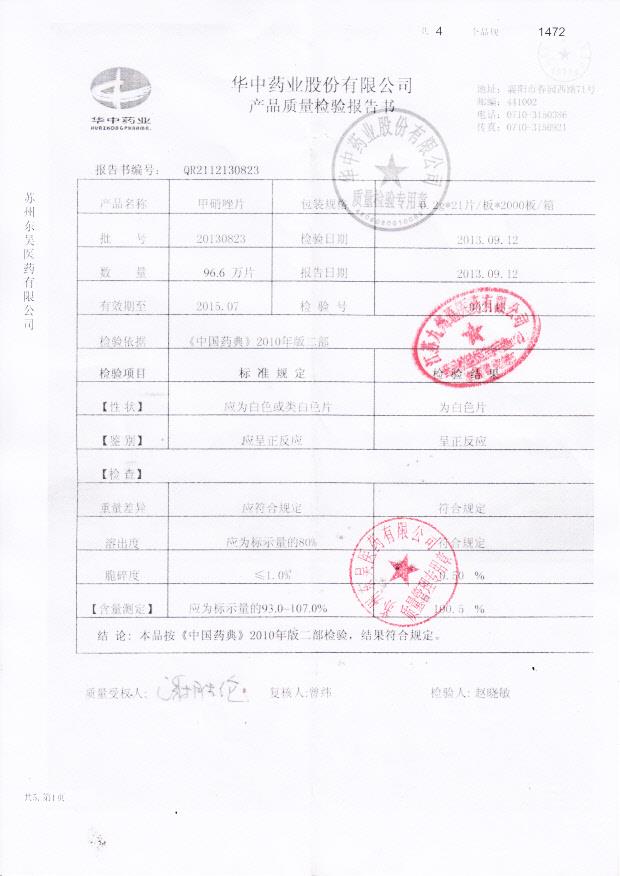 共 4 个品规 1472
华中药业
HUAZHONG PHARMA.
华中药业股份有限公司
产品质量检验报告书
地址：襄阳市春园西路71号
邮编：441002
电话：0710-3150386
传真：0710-3156921
华中药业股份有限公司
质量检验专用章
报告书编号： QR2112130823
产品名称 甲硝唑片 包装规格 0.2g*21片/板*2000板/箱
批 号 20130823 检验日期 2013.09.12
数 量 96.6 万片 报告日期 2013.09.12
有效期至 2015.07 检 验 号
江苏九州通医药有限公司
检验依据 《中国药典》2010年版二部
检验项目 标 准 规 定 检 验 结 果
【性 状】 应为白色或类白色片 为白色片
【鉴 别】 应呈正反应 呈正反应
【检 查】
重量差异 应符合规定 符合规定
溶出度 应为标示量的80% 符合规定
脆碎度 ≤1.0% 0.50 %
【含量测定】 应为标示量的93.0-107.0% 100.5 %
苏州东吴医药有限公司
质量管理专用章
结 论：本品按《中国药典》2010年版二部检验，结果符合规定。
质量受权人： 复核人:曾纬 检验人: 赵晓敏
苏州东吴医药有限公司
共5, 第1页